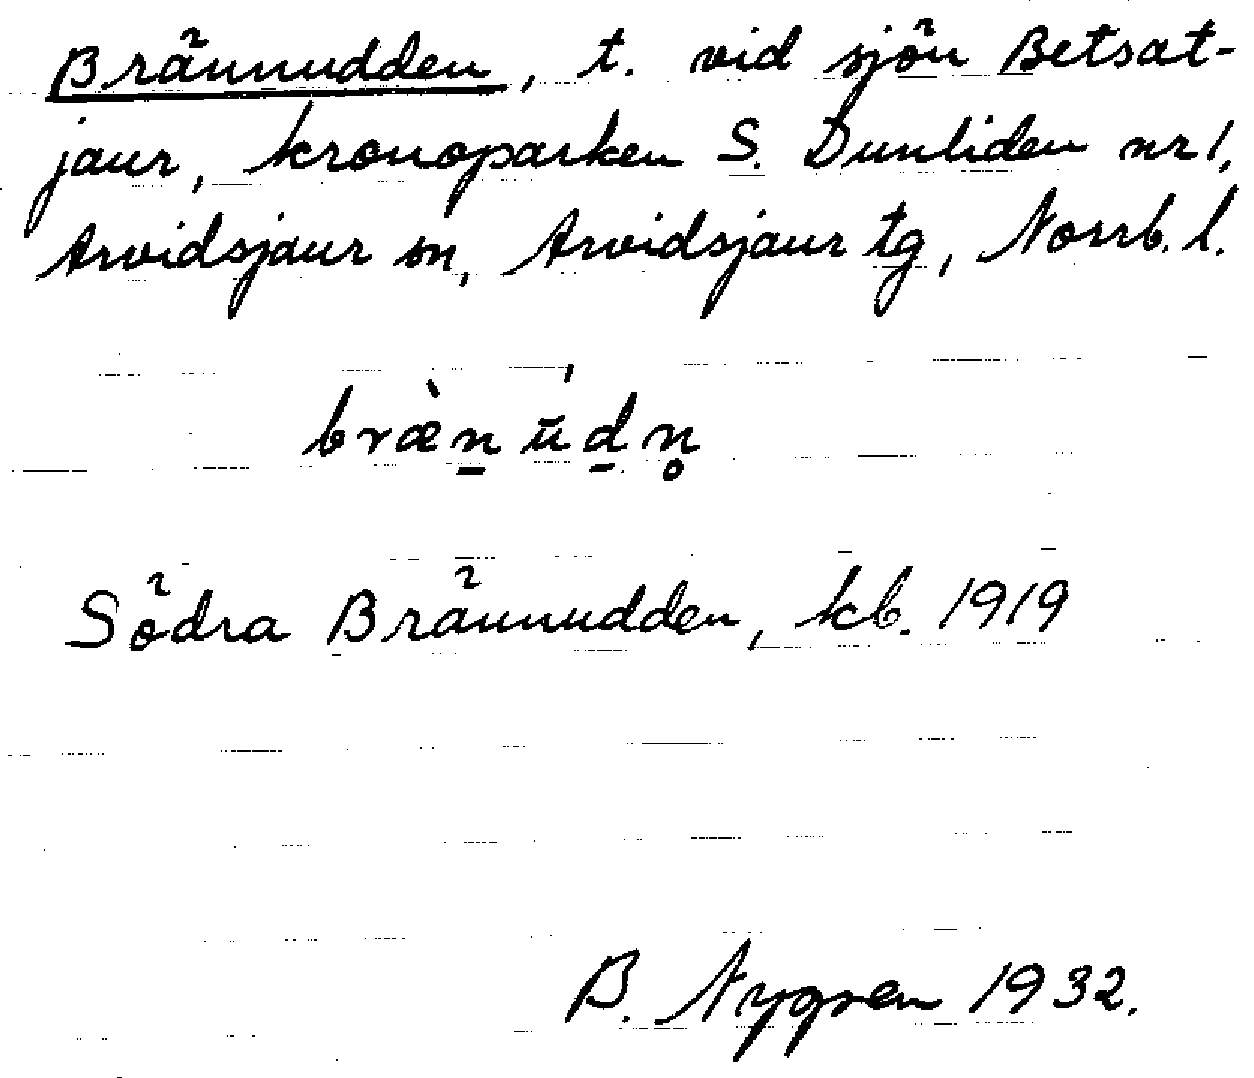 Brännudden, t. vid sjön Betsat-
jaur, kronoparken S. Dunliden nr 1,
Arvidsjaur sn, Arvidsjaur tg, Norrb. l.
bræ̀n̠ ū́d̠n̥
Södra Brännudden, kb. 1919
B. Nygren 1932.